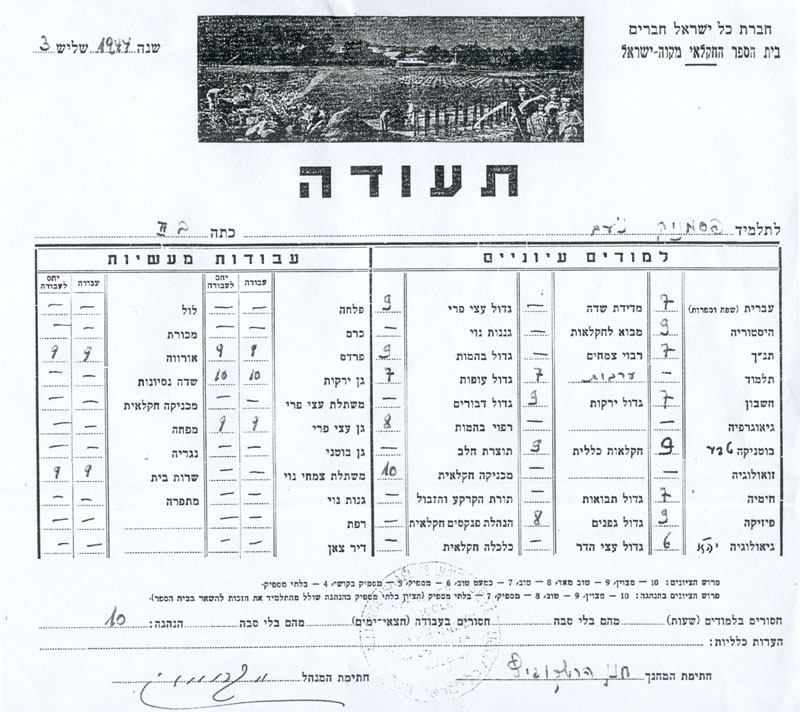 חברת כל ישראל חברים
בית הספר החקלאי מקוה-ישראל
שנה 1944 שליש 3
תעודה
לתלמיד נעם כתה ב II
למודים עיוניים עבודות מעשיות
עבודה יחס לעבודה עבודה יחס לעבודה
עברית (שפה וספרות) 7 מדידת שדה — גדול עצי פרי 9 פלחה — — לול — —
היסטוריה 9 מבוא לחקלאות — גננות נוי — כרם — — מכורת — —
תנ״ך 7 רבוי צמחים — גדול בהמות 9 פרדס 9 9 אורווה 9 9
תלמוד — ערבית 7 גדול עופות 7 גן ירקות 10 10 שדה נסיונות — —
חשבון 7 גדול ירקות 9 גדול דבורים — משתלת עצי פרי — — מכניקה חקלאית — —
גיאוגרפיה — — רפוי בהמות 8 גן עצי פרי 9 9 מפחה — —
בוטניקה טבע 9 חקלאות כללית 9 תוצרת חלב — גן בוטני — — נגריה — —
זואולוגיה — — מכניקה חקלאית 10 משתלת צמחי נוי — — שרות בית 9 9
חימיה 7 גדול תבואות — תורת הקרקע והזבול — גנות נוי — — מתפרה — —
פיזיקה 9 גדול גפנים 8 הנהלת פנקסים חקלאית — רפת — — — —
גיאולוגיה 6 גדול עצי הדר — כלכלה חקלאית — דיר צאן — — — —
פרוש הציונים: 10 — מצוין, 9 — טוב מאד, 8 — טוב, 7 — כמעט טוב, 6 — מספיק, 5 — מספיק בקושי, 4 — בלתי מספיק.
פרוש הציונים בהנהגה: 10 — מצוין, 9 — טוב, 8 — מספיק, 7 — בלתי מספיק (הציון בלתי מספיק בהנהגה שולל מהתלמיד את הזכות להשאר בבית הספר).
חסורים בלמודים (שעות) מהם בלי סבה חסורים בעבודה (חצאי-ימים) מהם בלי סבה הנהגה: 10
הערות כלליות:
חתימת המחנך חתימת המנהל